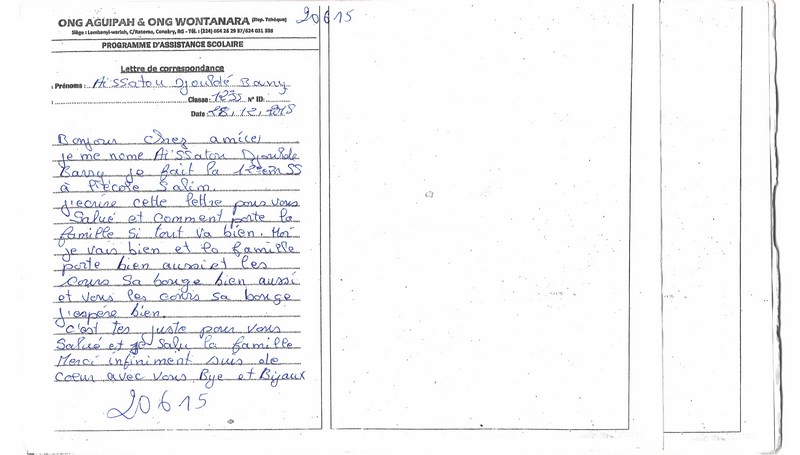 ONG AGUIPAH & ONG WONTANARA (Rep. Tchèque)
20615
Siège : Lambanyi-warish, C/Ratoma, Conakry, RG - Tél. : (224) 664 26 29 87/624 031 336
PROGRAMME D'ASSISTANCE SCOLAIRE
Lettre de correspondance
Prénoms : Aissatou Djouldé Barry
Classe : 12SS N° ID:
Date : 28.12.2018
Bonjour Chez amice,
je me nome Aissatou Djoulde
Barry je fait la 12èm SS
à l'école Salim.
j'ecrire cette lettre pour vous
Salué et comment porte la
famille si tout va bien. Moi
je vais bien et la famille
porte bien aussi et les
cours sa bouge bien aussi
et vous les cours sa bouge
j'espère bien.
c'est tès juste pour vous
Salué et je salu la famille
Merci infiniment suis de
Cœur avec vous, Bye et Bijaux
20615